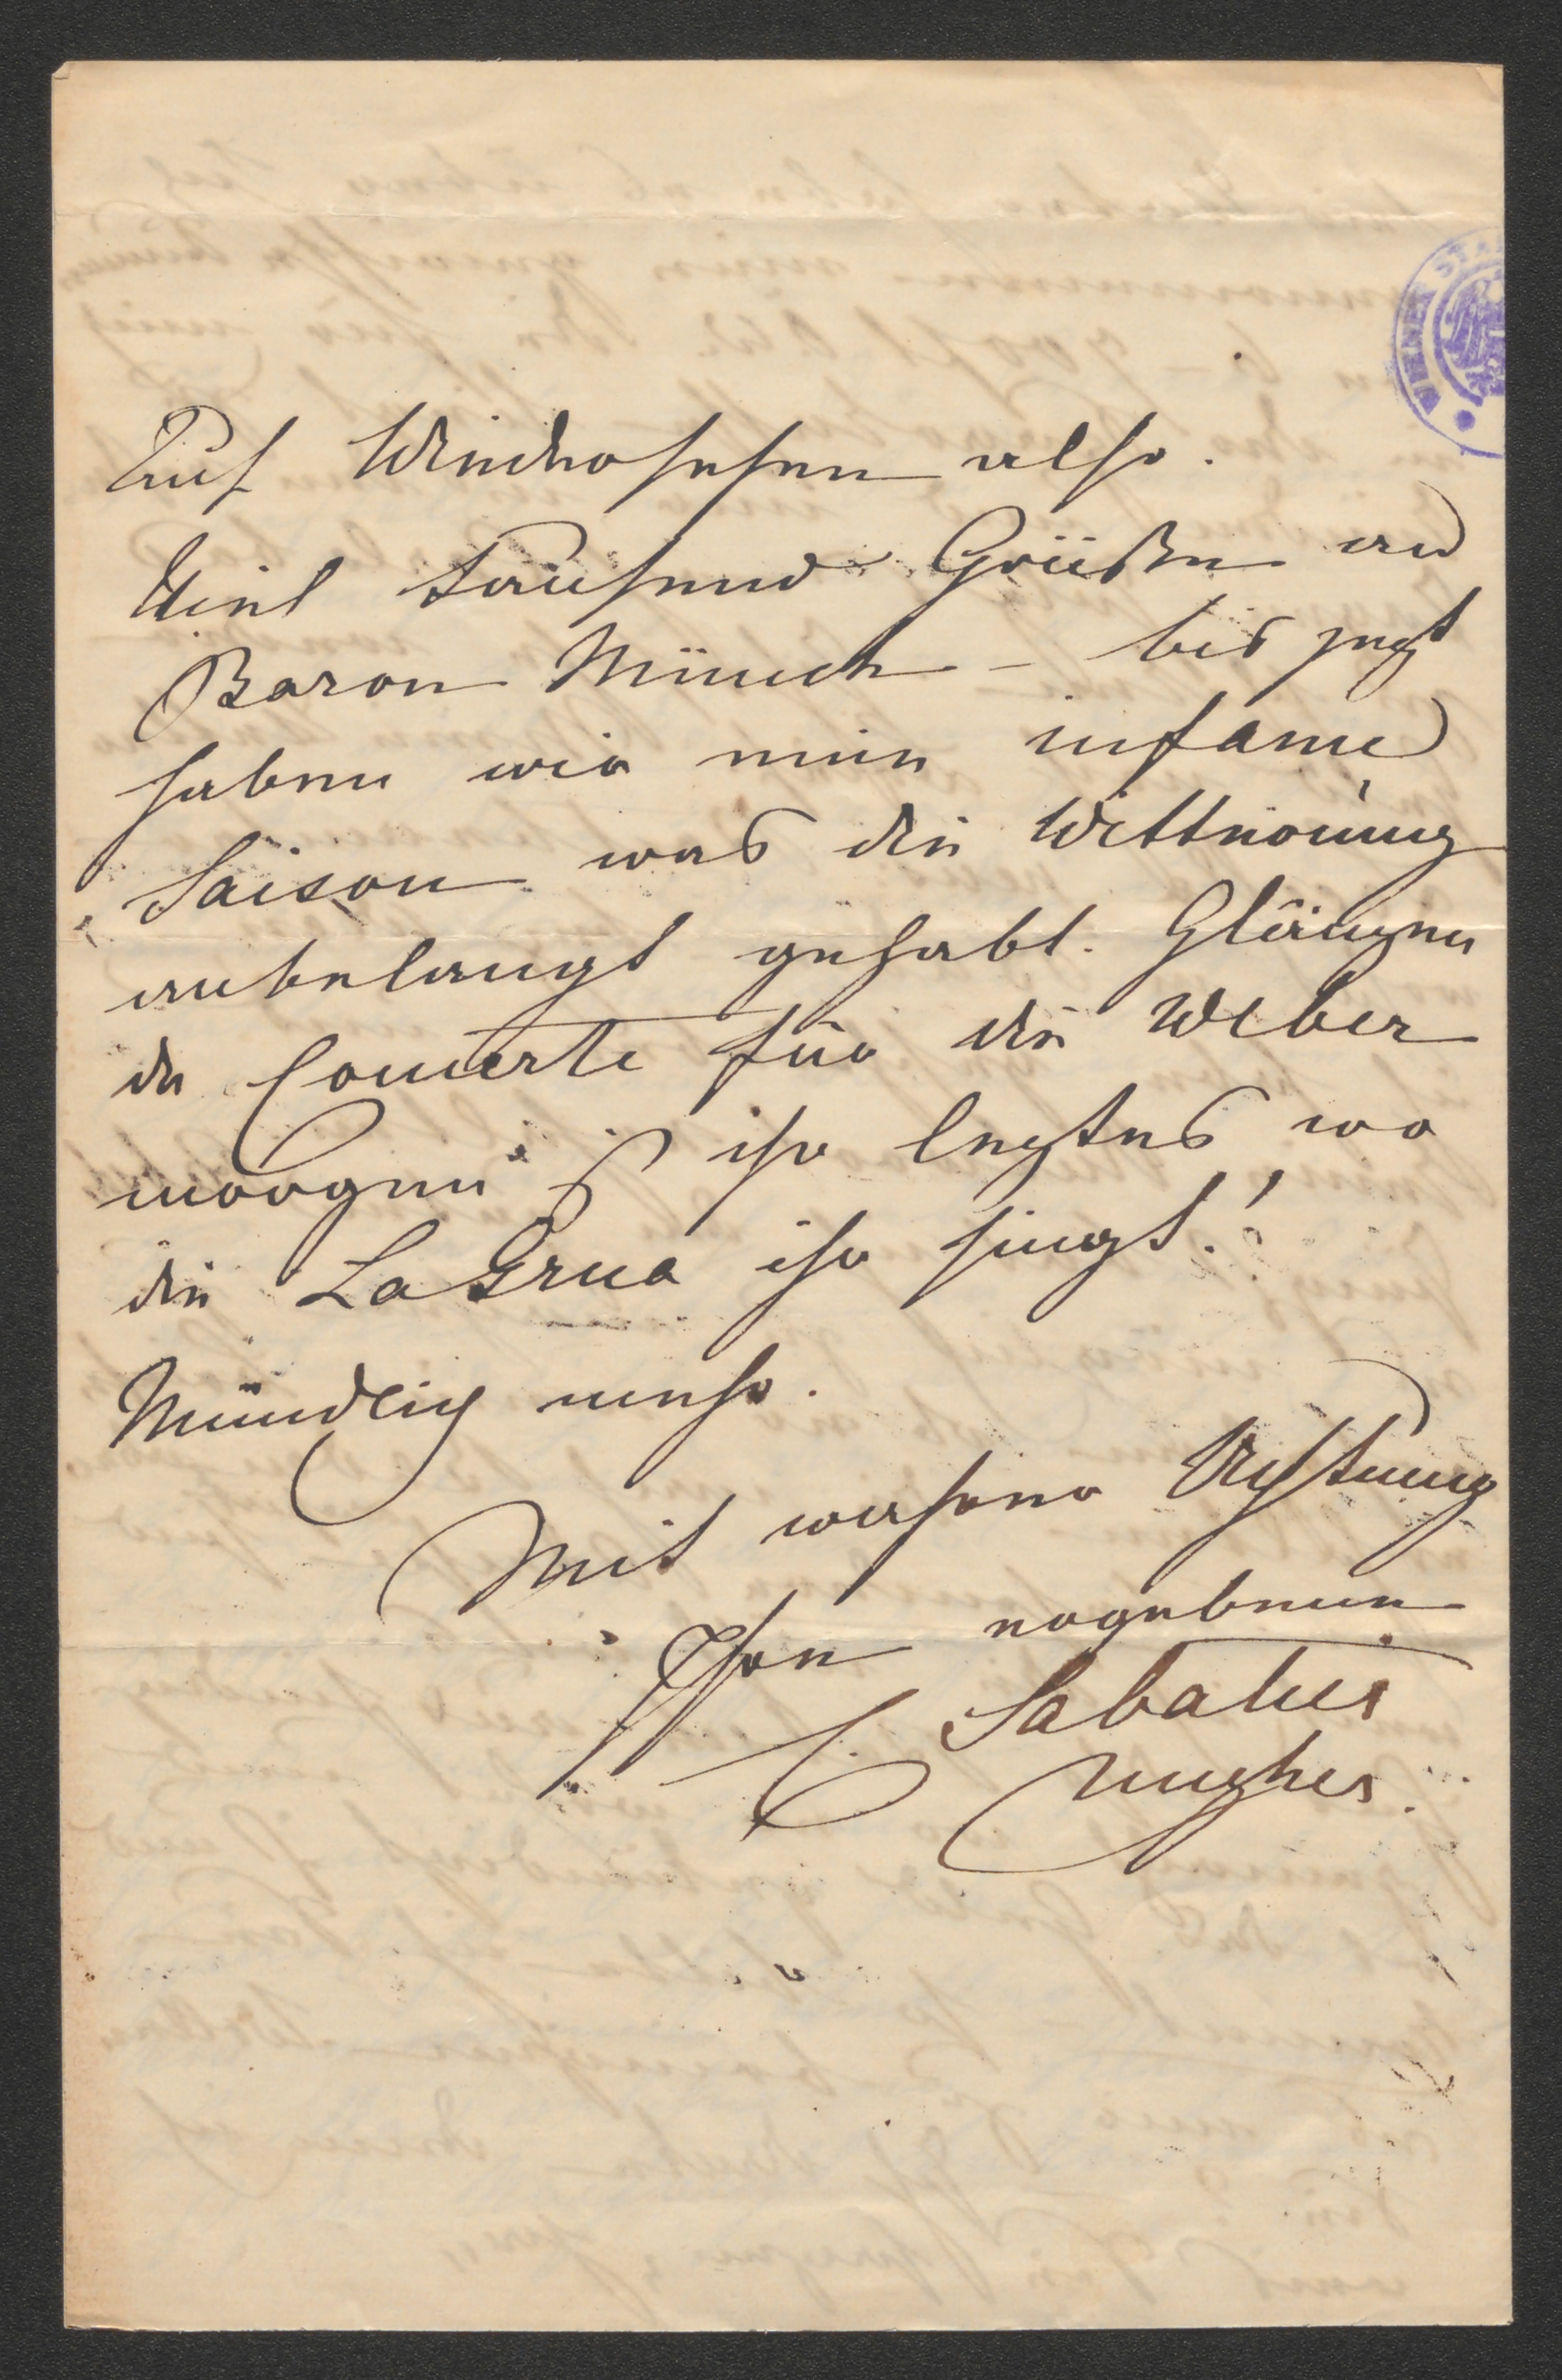 Auf Wiedersehen also.
Viel tausend Grüße an
Baron Münch – bis jezt
haben wir eine infame
Saison was die Witterung
anbelangt gehabt. Glänzen
de Concerte für die Weber
morgen ihr leztes wo
die LaGrua ihr singt!
Mündlich mehr.
Mit wahrer Achtung
Ihre ergebene
C Sabatier
Ungher.
WIENER STA